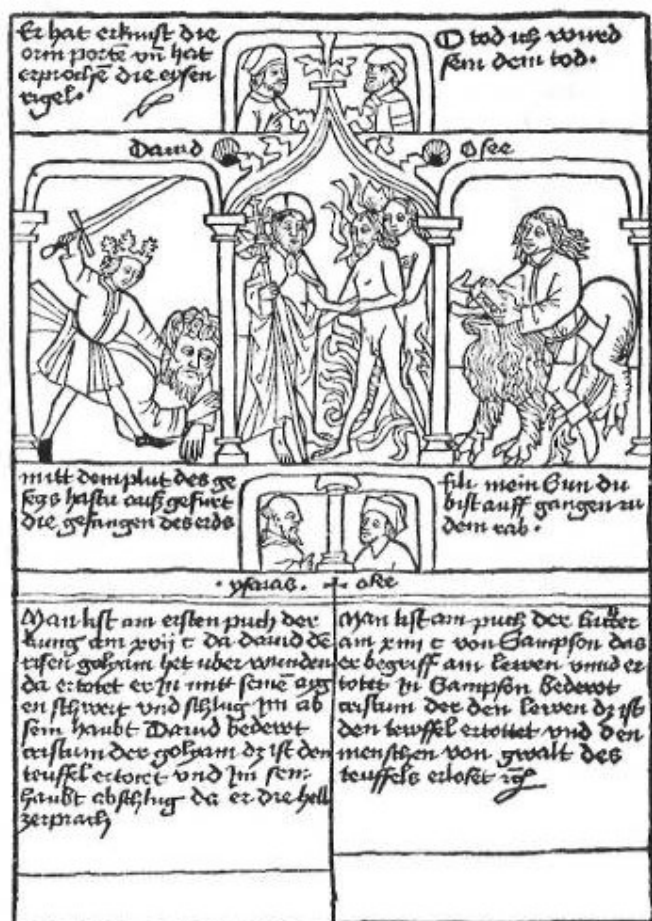 Er hat erknist die
orin porte vn̄ hat
erprochē die eysen
rigel.
O tod ich wurd
sein dem tod.
Dauid
Osee
mitt dem plut des ge
segs hastu auß gefurt
die gefangen des erds
fili mein Sun du
bist auff gangen zu
dem rab.
ysaias.
Man list am ersten puch der
kung am xvij c da dauid dē
risen golyam het uber wunden
da ertotet er In mitt seinē ayg
en schwert vnd schlug Im ab
sein haubt Dauid bedewt
cristum der golyam dz ist den
teuffel ertotet vnd Im sein
haubt abschlug da er die hell
zerprach
Man list am puch der
am xiiij c von Sampson das
er begriff am lewen vnnd er
totet In Sampson bedewt
cristum der den lewen dz ist
den tewffel ertottet vnd den
menschen von gwalt des
teuffels erloset